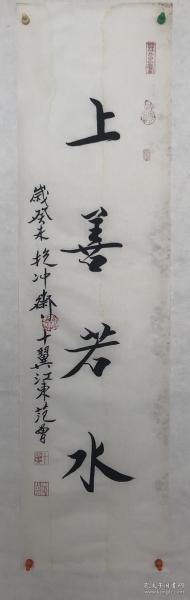 上善若水
歲癸未 抱冲齋 十翼江東范曾